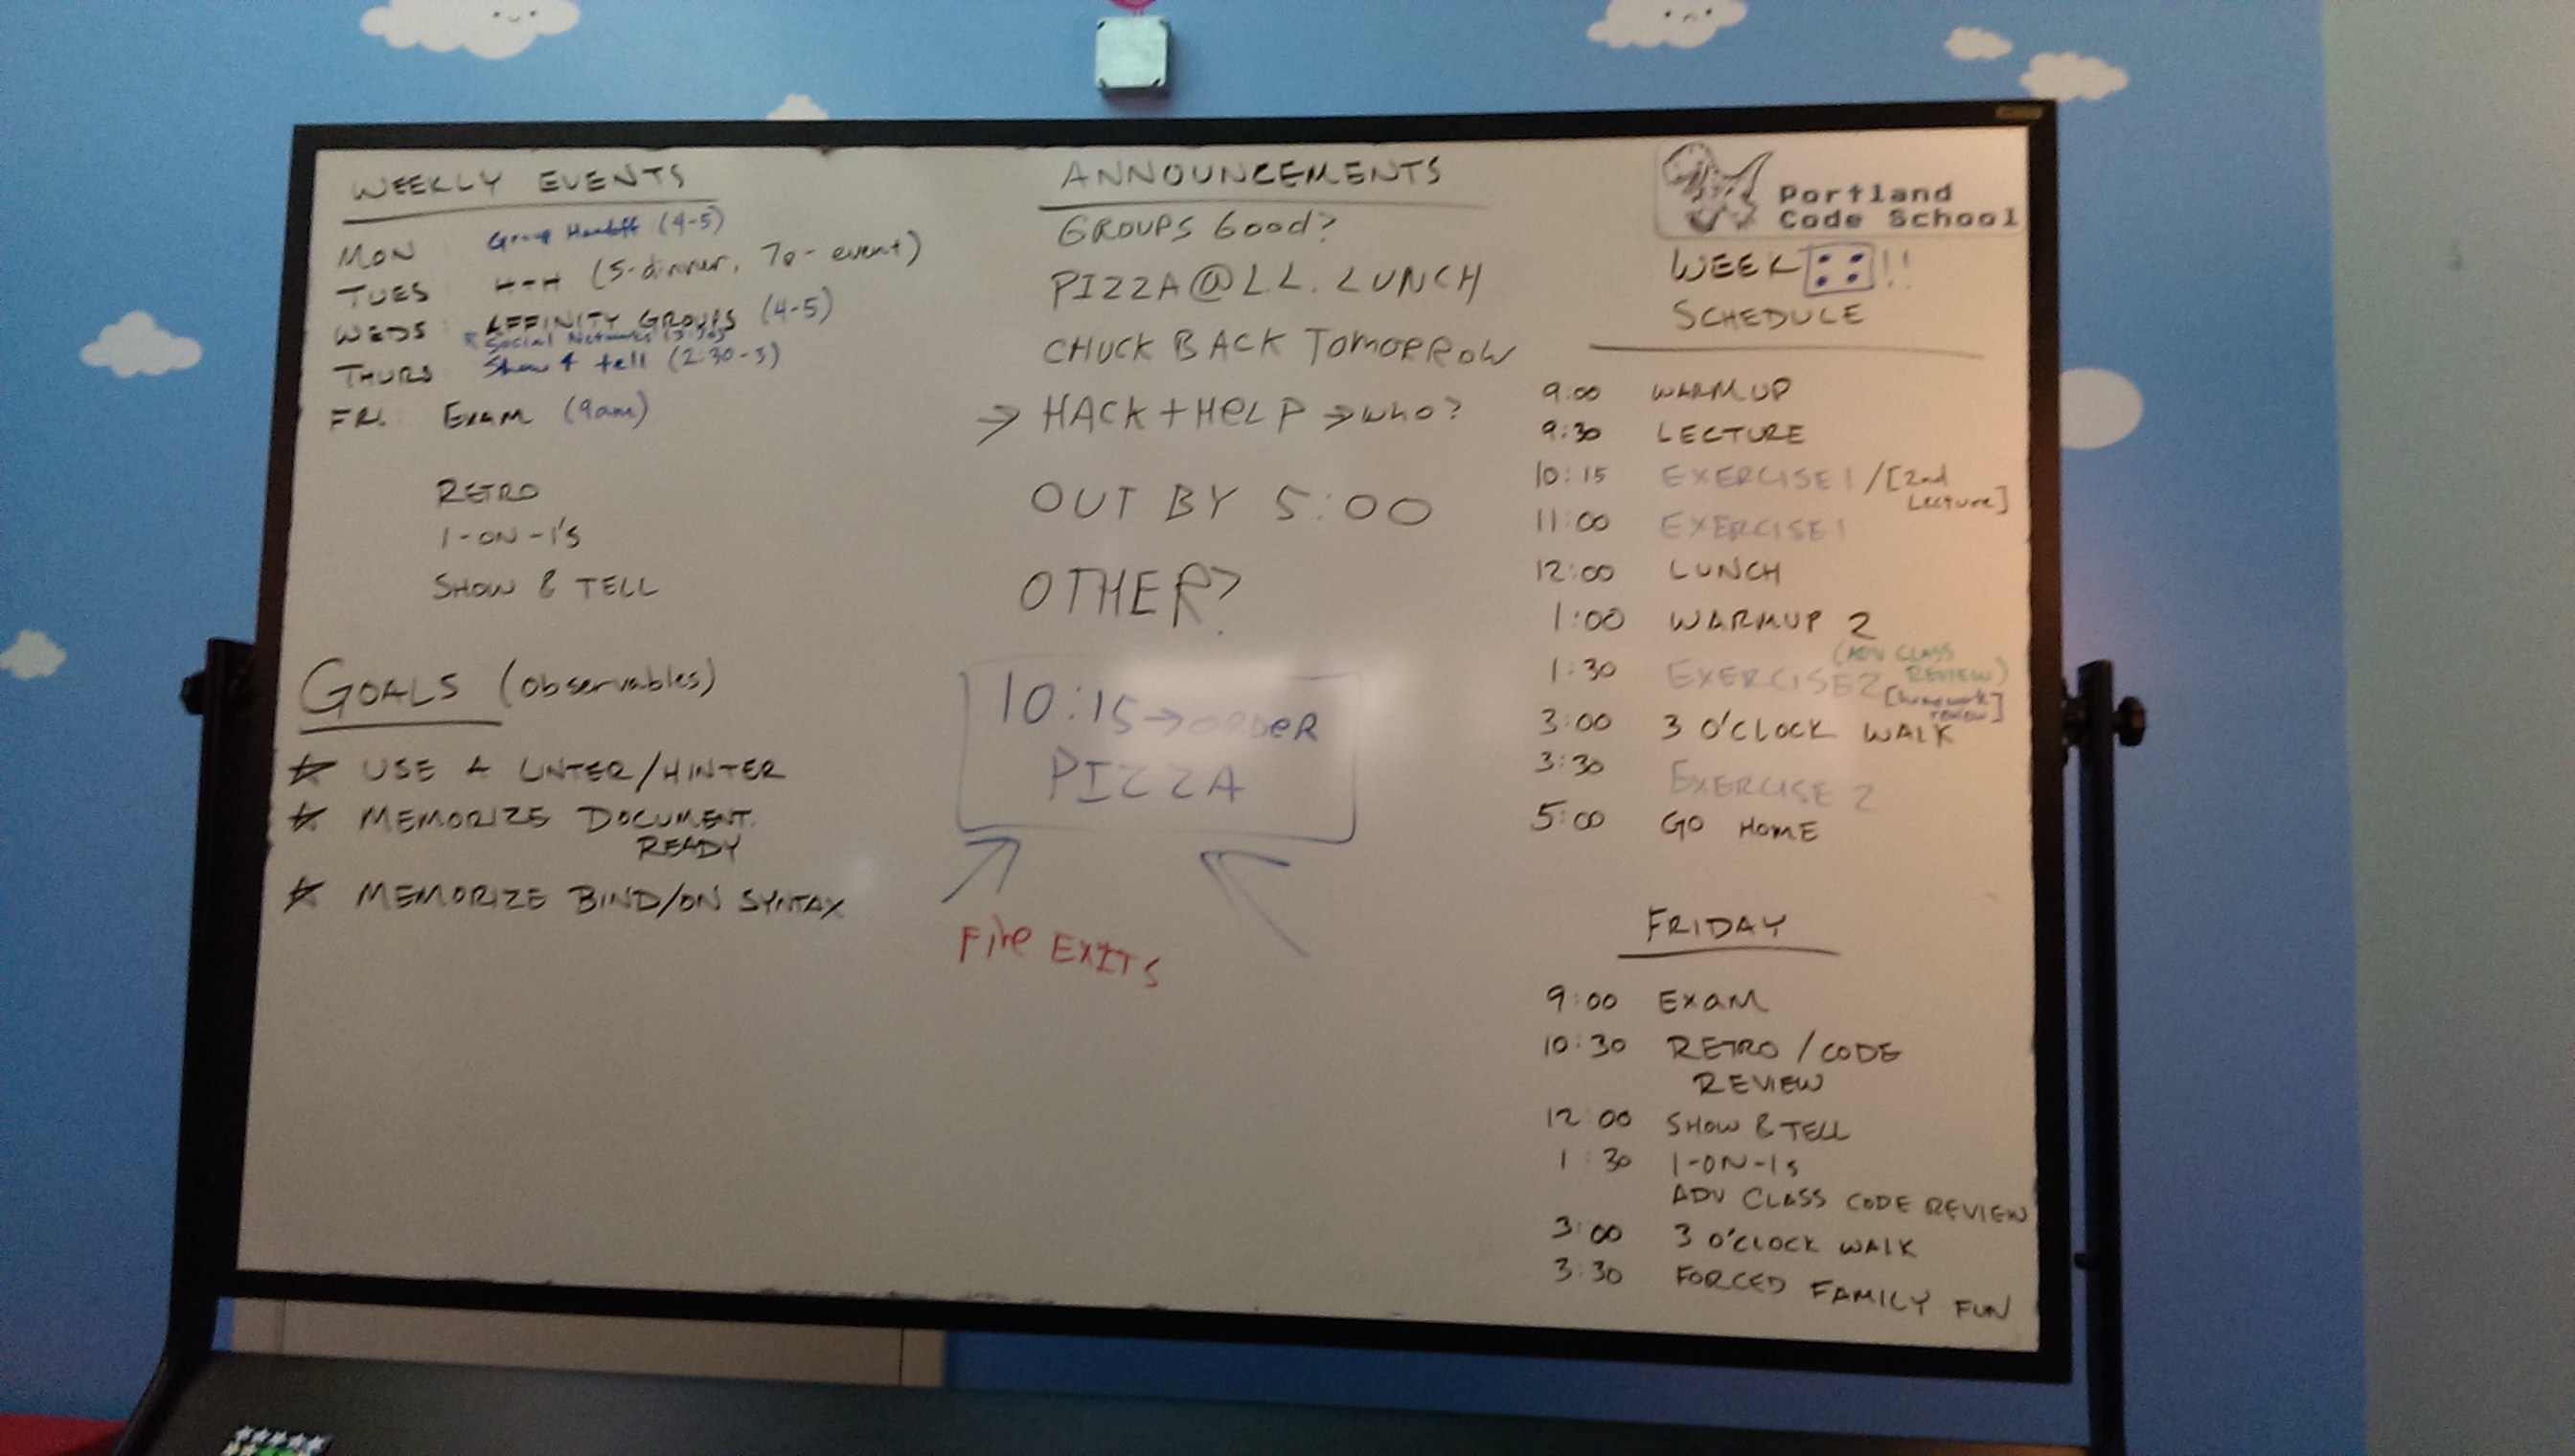 WEEKLY EVENTS
MON Group Handoff (4-5)
TUES H+H (5-dinner, 7p - event)
WEDS: AFFINITY GROUPS (4-5)
Social Networks
THURS Show & tell (2:30-3)
FRI. EXAM (9am)
RETRO
1-ON-1'S
SHOW & TELL
GOALS (observables)
USE A LINTER/HINTER
MEMORIZE DOCUMENT.
READY
MEMORIZE BIND/ON SYNTAX
ANNOUNCEMENTS
GROUPS Good?
PIZZA@L.L. LUNCH
CHUCK BACK TOMORROW
→ HACK + HELP → who?
OUT BY 5:00
OTHER?
10:15→ORDER
PIZZA
FIRE EXITS
Portland
Code School
WEEK !!
SCHEDULE
9:00 WARMUP
9:30 LECTURE
10:15 EXERCISE 1 / [2nd
Lecture]
11:00 EXERCISE 1
12:00 LUNCH
1:00 WARMUP 2
(ADV CLASS
REVIEW)
1:30 EXERCISE 2 [homework
review]
3:00 3 O'CLOCK WALK
3:30 EXERCISE 2
5:00 GO HOME
FRIDAY
9:00 EXAM
10:30 RETRO / CODE
REVIEW
12:00 SHOW & TELL
1:30 1-ON-1s
ADV CLASS CODE REVIEW
3:00 3 O'CLOCK WALK
3:30 FORCED FAMILY FUN